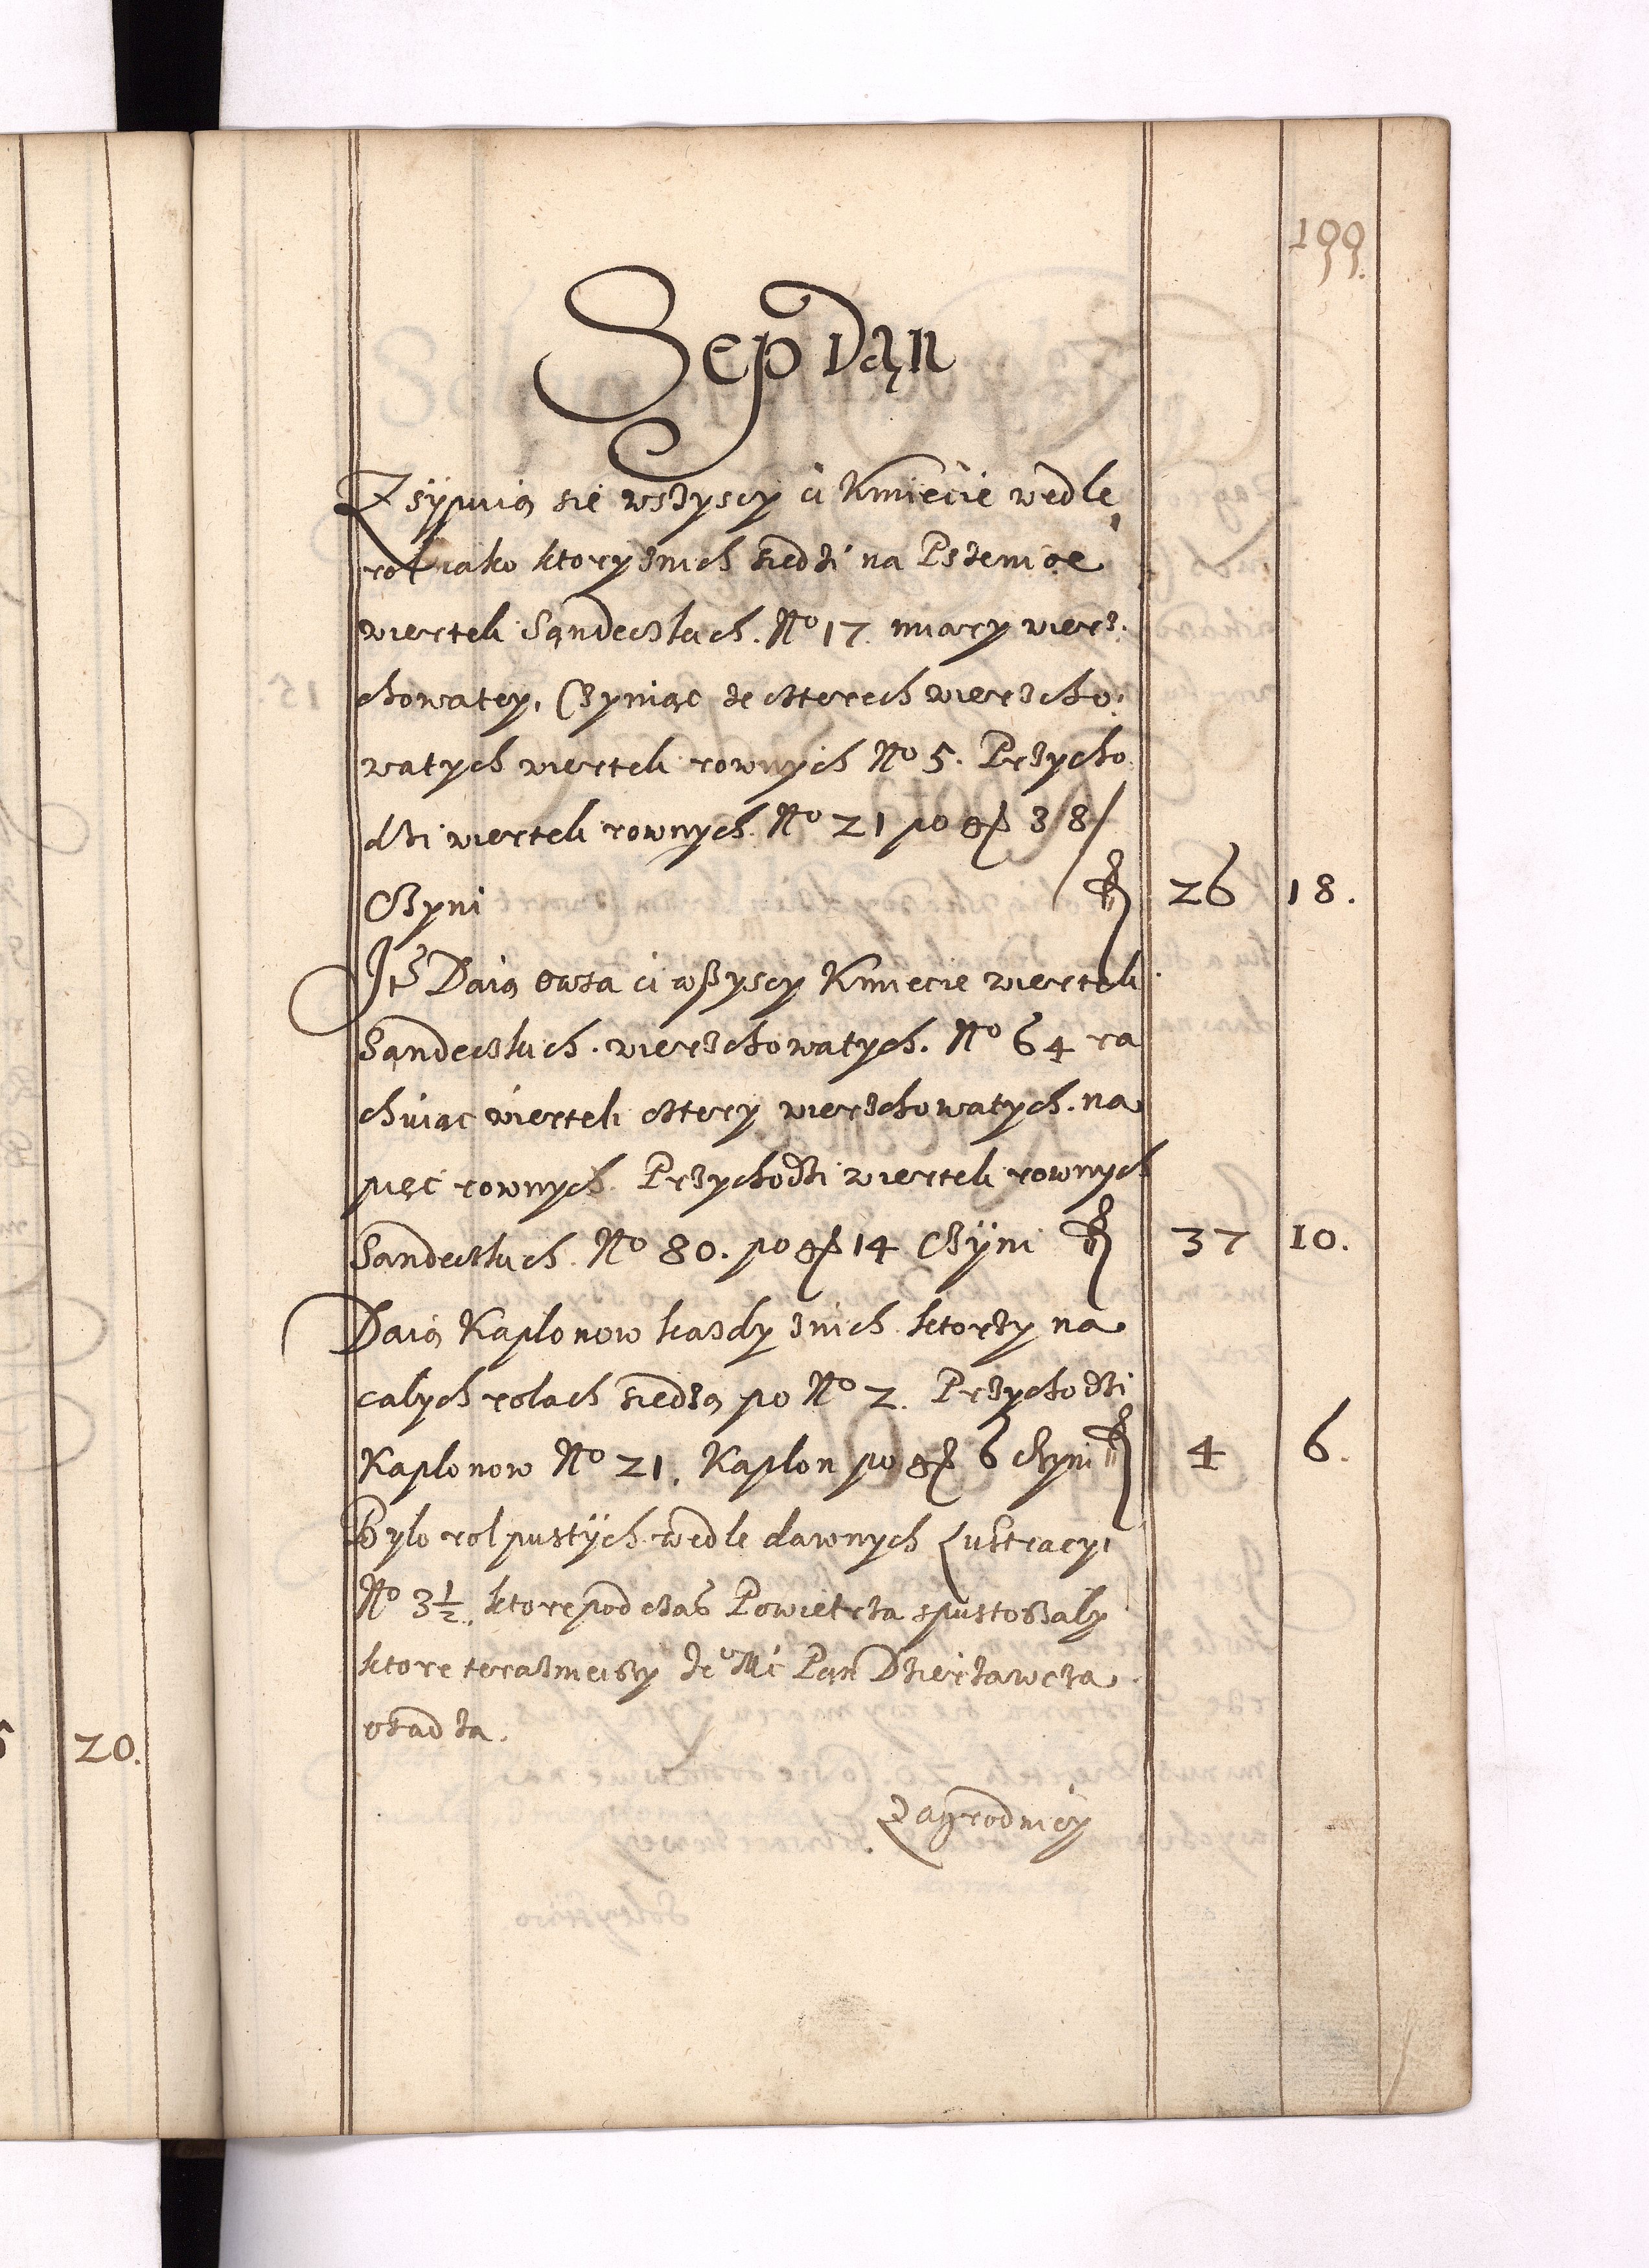 199.
Sep Dąn
Zsÿpuią się wszyscy ci Kmiecie wedle
rol iako ktory znich siedzi na Pszenice
wierteli Sąndeczkich. No 17. miary wierz:
chowatey, Czyniąc ze czterech wierzcho:
watych wierteli rownych No 5. Przycho
dzi wierteli rownych. No 21 po gr 38/
Czyni fl 26 18.
Itm Daią owsa ci wszyscy Kmiecie wierteli
Sąndeczkich. wierzchowatych. No 64 ra
chuiąc wierteli cztery wierzchowatych. na
pięc rownych. Przychodzi wierteli rownych
Sandeczkich. No 80. po gr 14 Czÿni fl 37 10.
Daią Kaplonow kazdy znich ktorzy na
calych rolach siedzą po No 2. Przychodzi
Kaplonow No 21. Kaplon po gr 6 Czyni fl 4 6.
Bylo rol pustÿch wedle dawnych Lustracyi
No 3 1/2. ktore pod czas Powietrza spustoszaly
ktore teraznieiszy Je Mc Pąn Dzierzawcza
osadza.
Zagrodnicy
20.